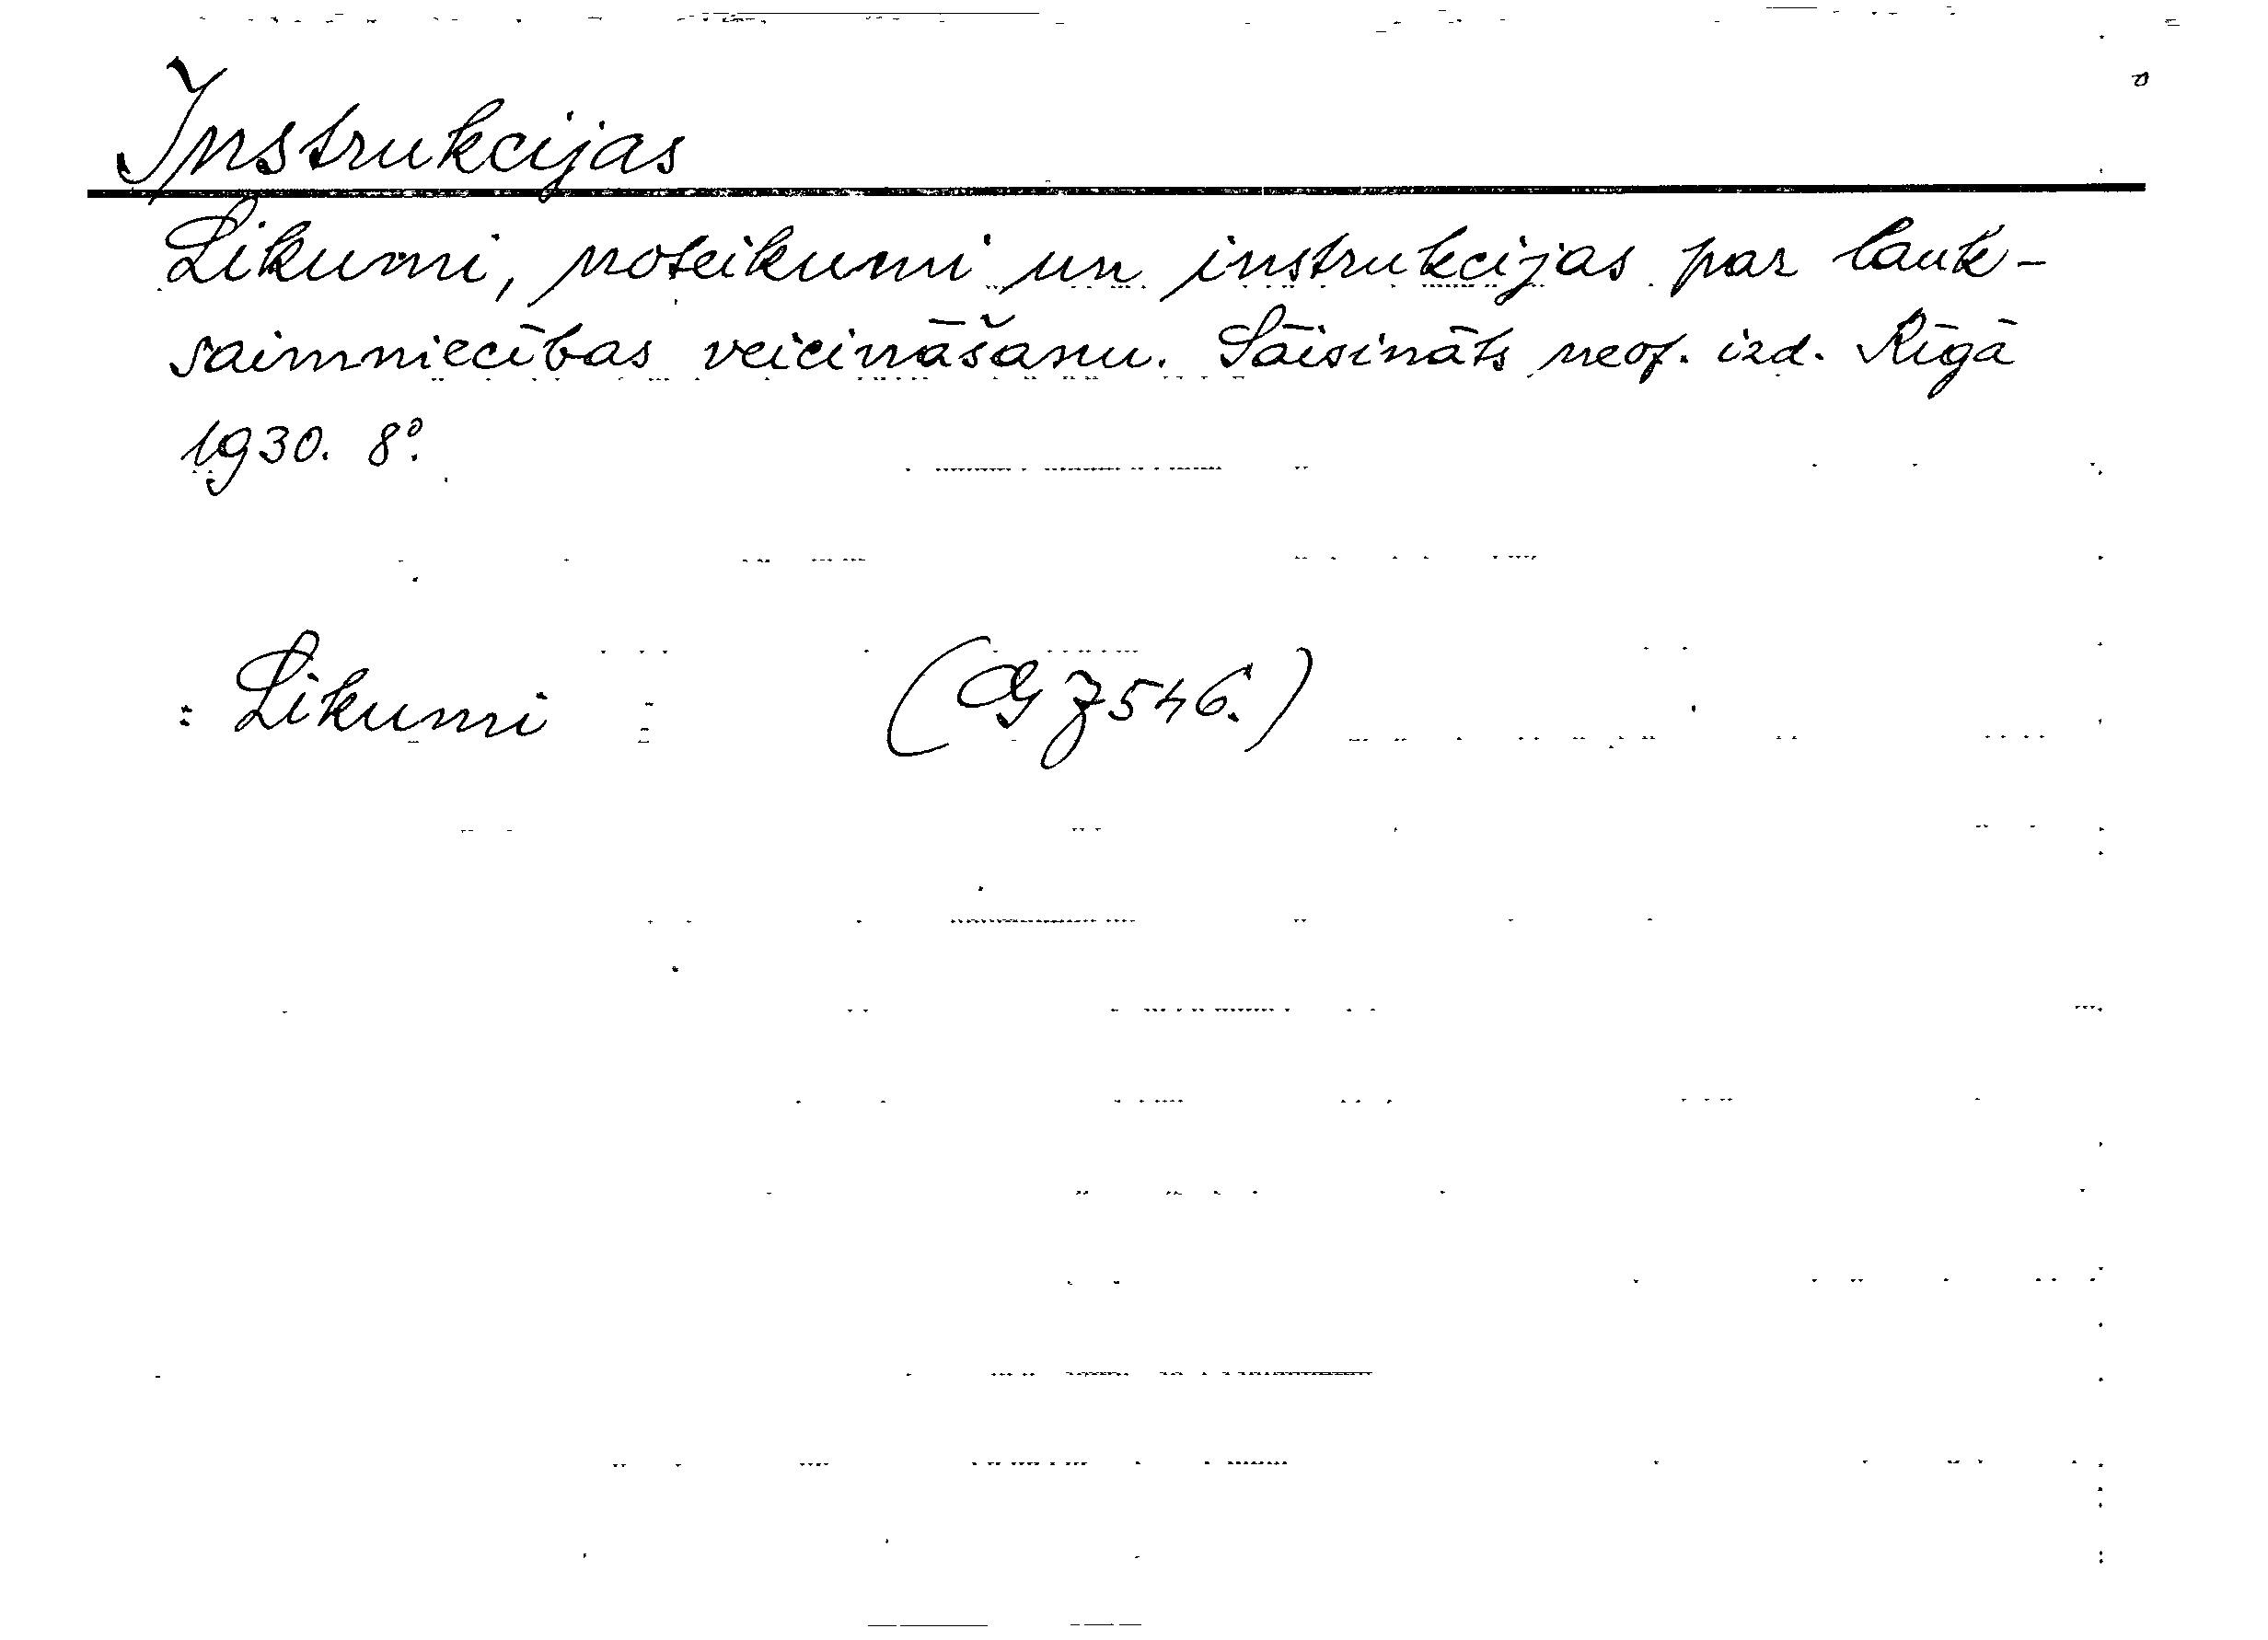 Instrukcijas
Likumi, noteikumi un instrukcijas par lauk-
saimniecības veicināšanu. Sāisināts neof. izd. Rīgā
1930. 8°.
: Likumi : (G 7546.)